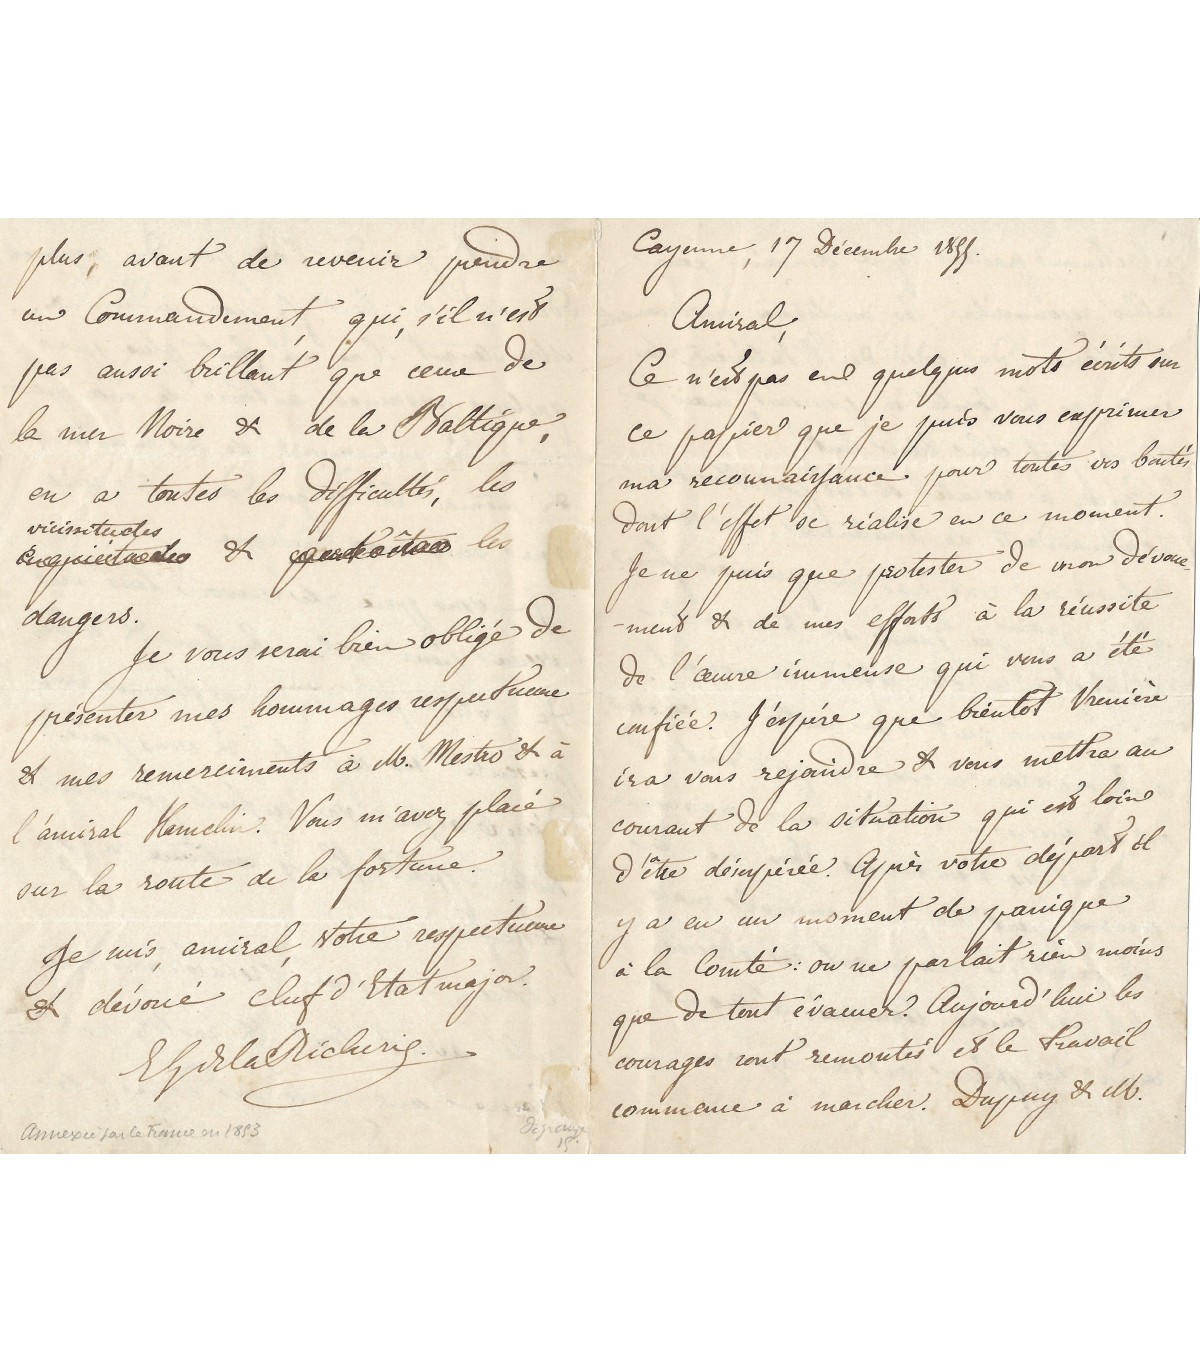 Cayenne, 17 Décembre 1855.
Amiral,
Ce n'est pas en quelques mots écrits sur
ce papier que je puis vous exprimer
ma reconnaissance pour toutes vos bontés
dont l'effet se réalise en ce moment.
Je ne puis que protester de mon dévoue-
-ment & de mes efforts à la réussite
de l'œuvre immense qui vous a été
confiée. J'espère que bientôt Vrenière
ira vous rejoindre & vous mettra au
courant de la situation qui est loin
d'être désespérée. Après votre départ il
y a eu un moment de panique
à la Comté: on ne parlait rien moins
que de tout évacuer? Aujourd'hui les
courages sont remontés et le travail
commence à marcher. Dupuy & M.
plus, avant de revenir prendre
un Commandement, qui, s'il n'est
pas aussi brillant que ceux de
la mer Noire & de la Baltique,
en a toutes les difficultés, les
vicissitudes
& les
dangers.
Je vous serai bien obligé de
présenter mes hommages respectueux
& mes remerciments à M. Mestro & à
l'amiral Hamelin. Vous m'avez placé
sur la route de la fortune.
Je suis, amiral, votre respectueux
& dévoué chef d'Etat major.
de la Richerie.
Annexée par la France en 1853